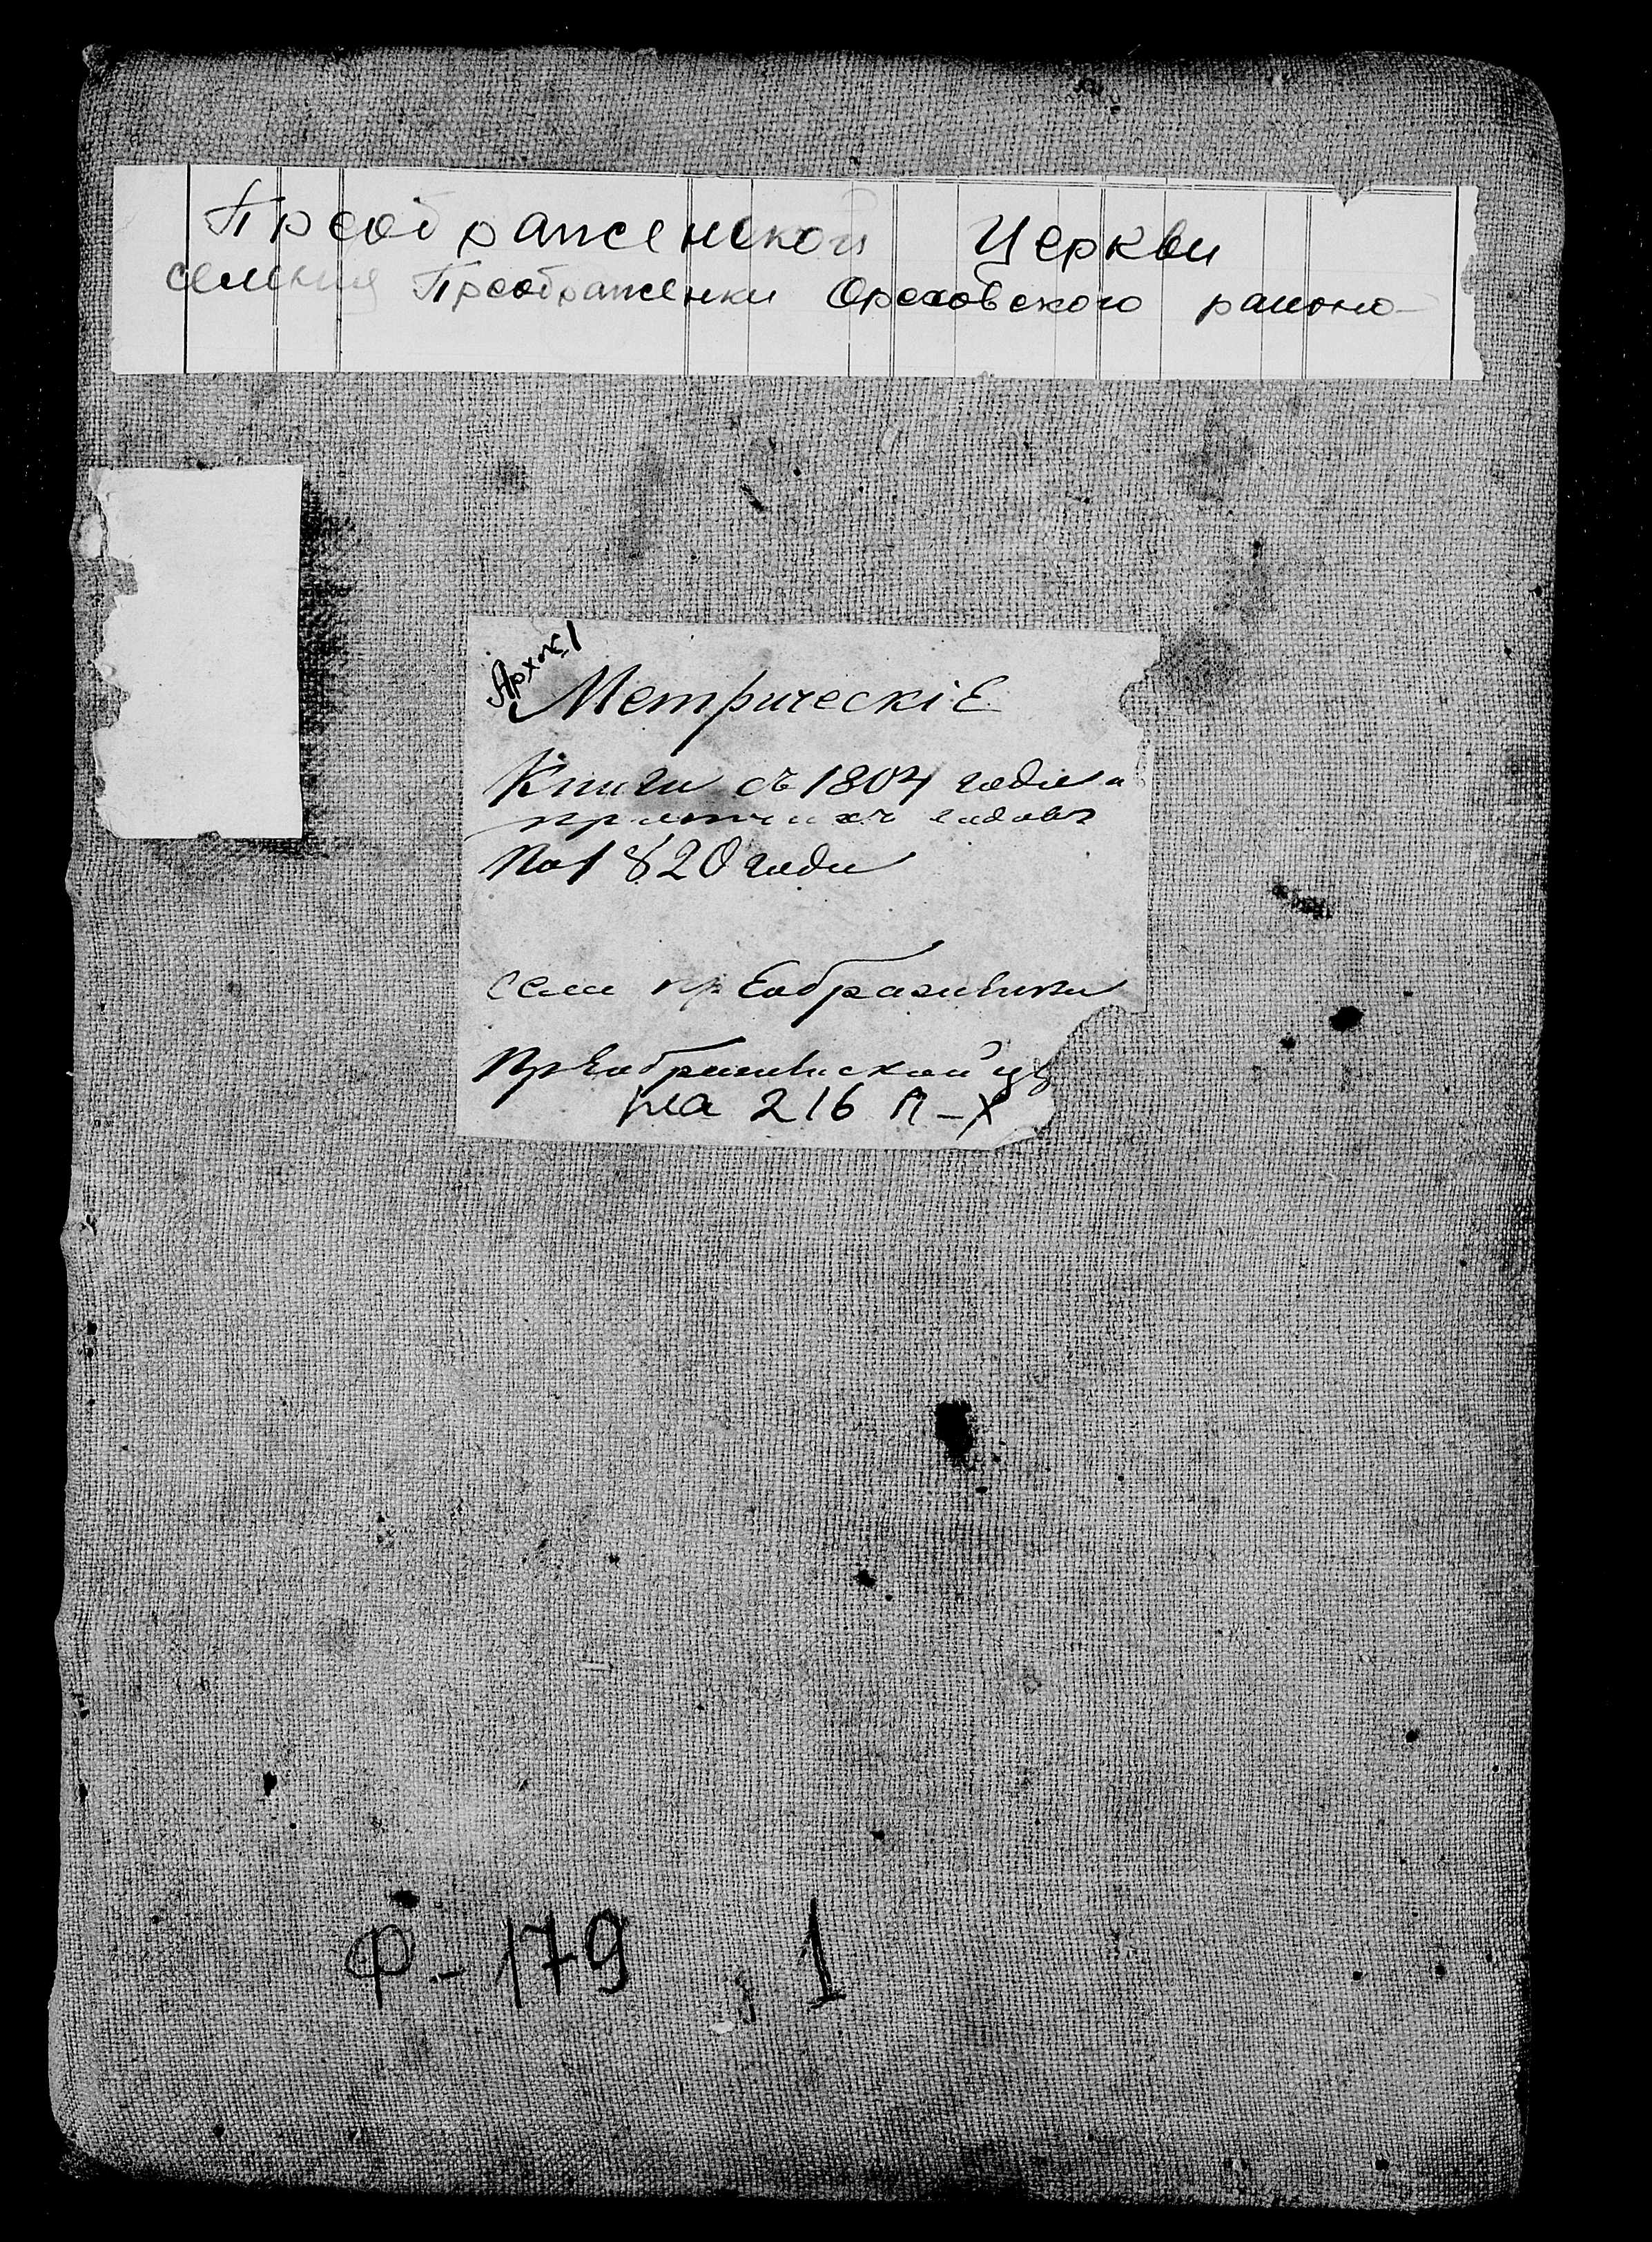 Преображенской Церкви
селения Преображенки Ореховского района
Арх № 1
МетрическіЕ
Книги съ 1804 года и
прочихъ годовъ
По 1820 годъ
села прЕображенки
ПрЕображенской це
на 216 л-х
Ф-179 1